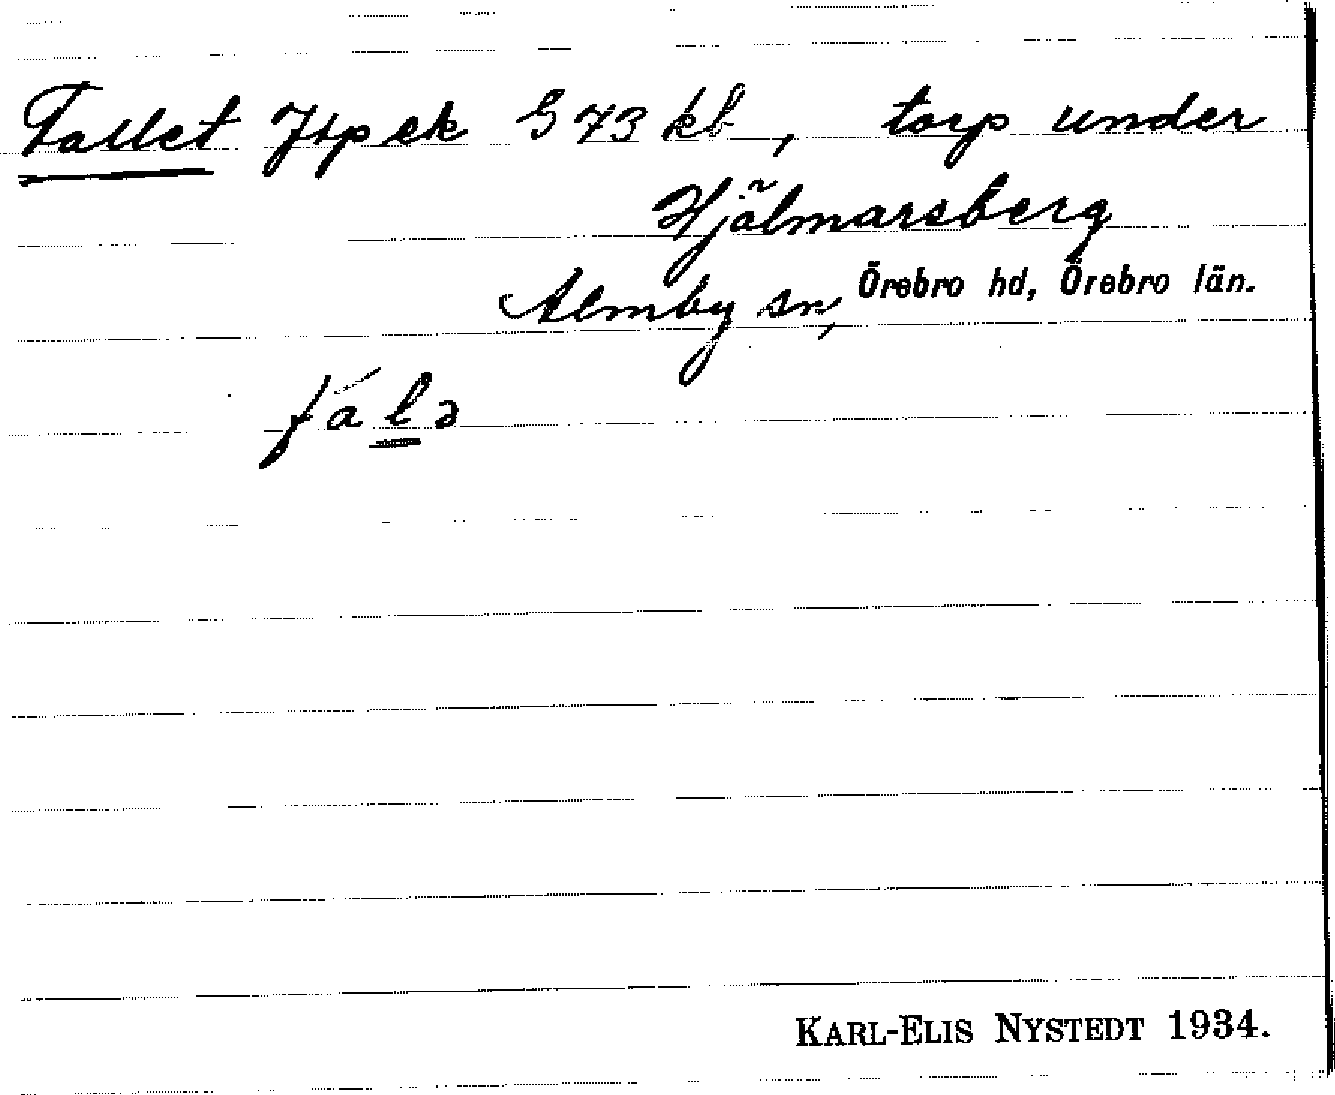 Fallet Jtp ek S 73 kb, torp under
Hjälmarsberg
Almby sn, Örebro hd, Örebro län.
fálə
KARL-ELIS NYSTEDT 1934.